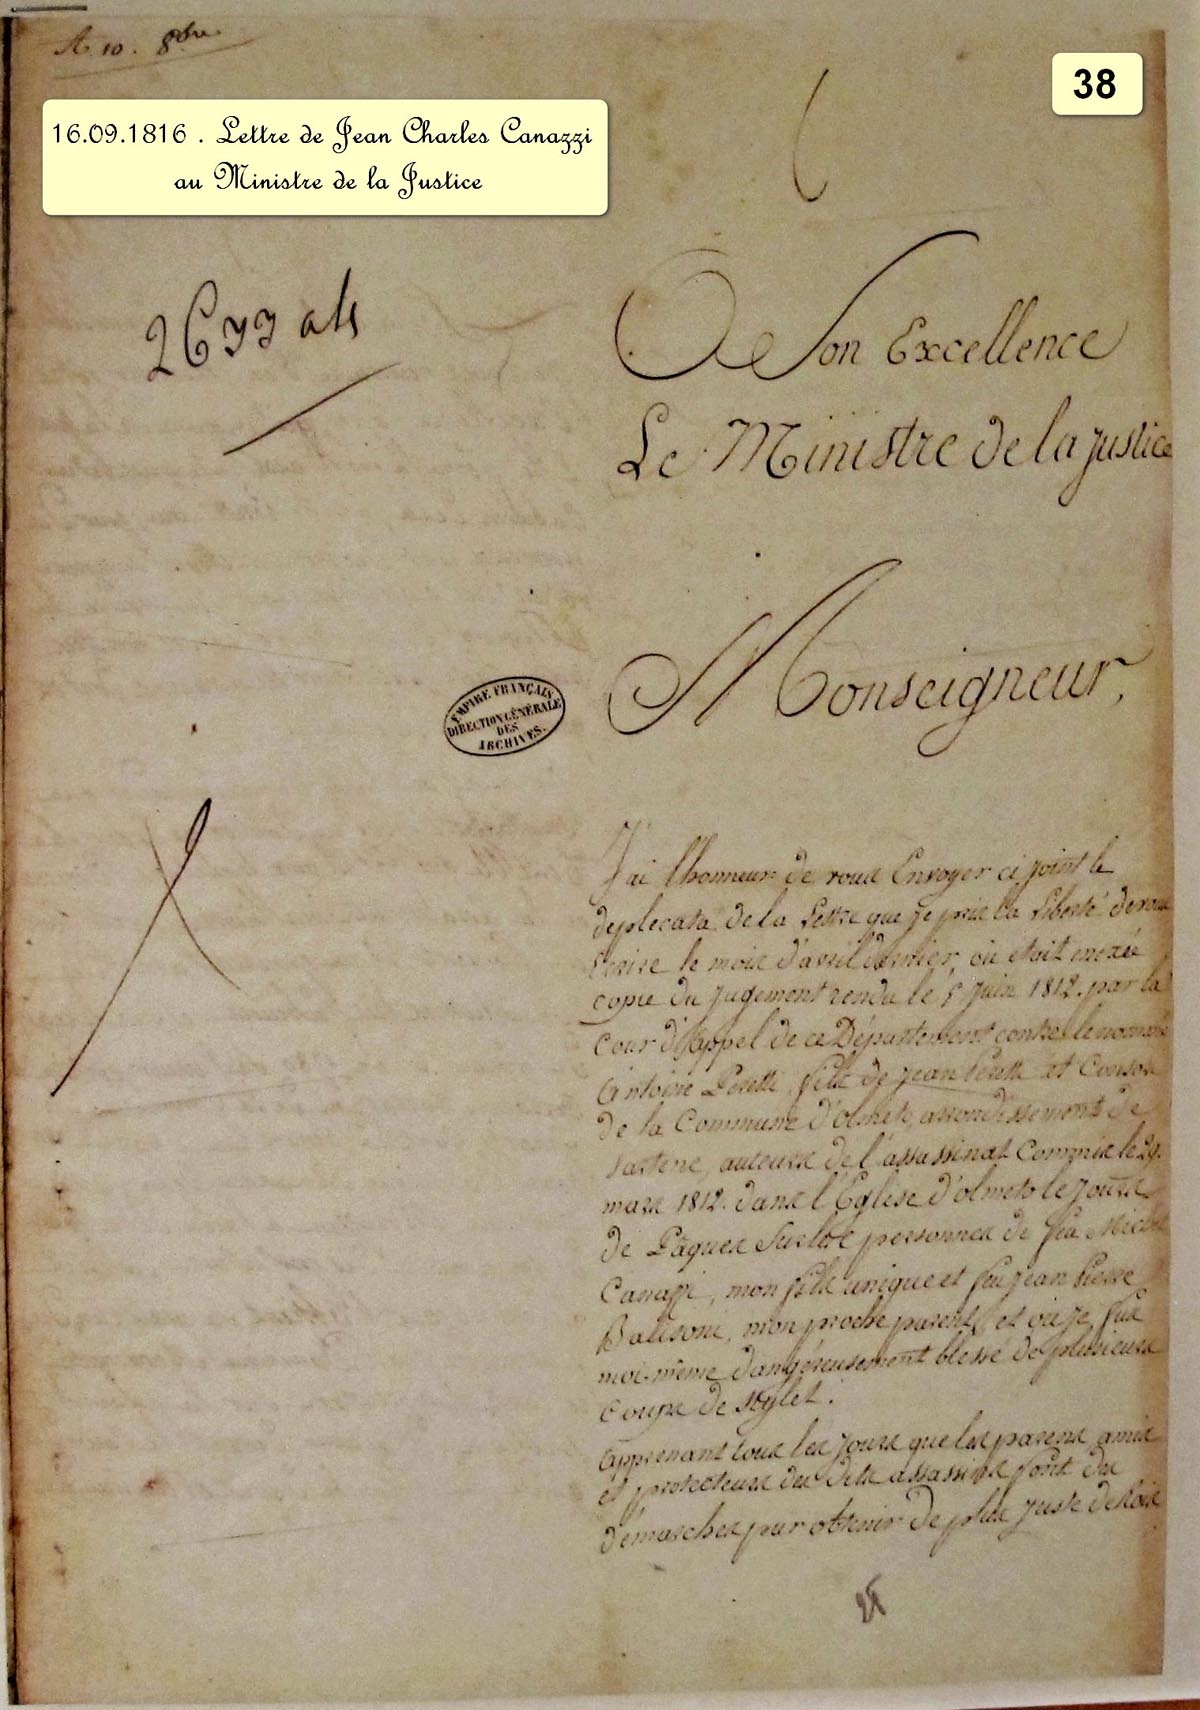 A. 10. 8bre
38
16.09.1816 . Lettre de Jean Charles Canazzi
au Ministre de la Justice
A Son Excellence
Le Ministre de la Justice
EMPIRE FRANÇAIS
DIRECTION GÉNÉRALE
DES
ARCHIVES.
Monseigneur,
J'ai l'honneur de vous Envoyer ci joint le
deplecata de la Lettre que je pris la liberté de vous
Ecrire le mois d'avril dernier, où était anexée
copie du Jugement rendu le 5 Juin 1812. par la
Cour d'Appel de ce Département contre le nommé
Antoine Peretti fils de Jean Peretti et Consors
de la Commune d'olmeto, arrondissement de
Sartene, auteurs de l'assassinat Commis le 29.
mars 1812. dans l'Eglise d'olmeto le jours
de Pâques sur les personnes de feu Michel
Canazzi, mon fils unique et feu jean Pierre
Balisoni, mon proche parent, et où je fus
moi-même dangéreusement blessé de plusieurs
coups de stylet.
Apprenant tous les jours que les parens amis
et protecteurs des dits assassins font des
démarches pour obtenir de plus juste de Rois